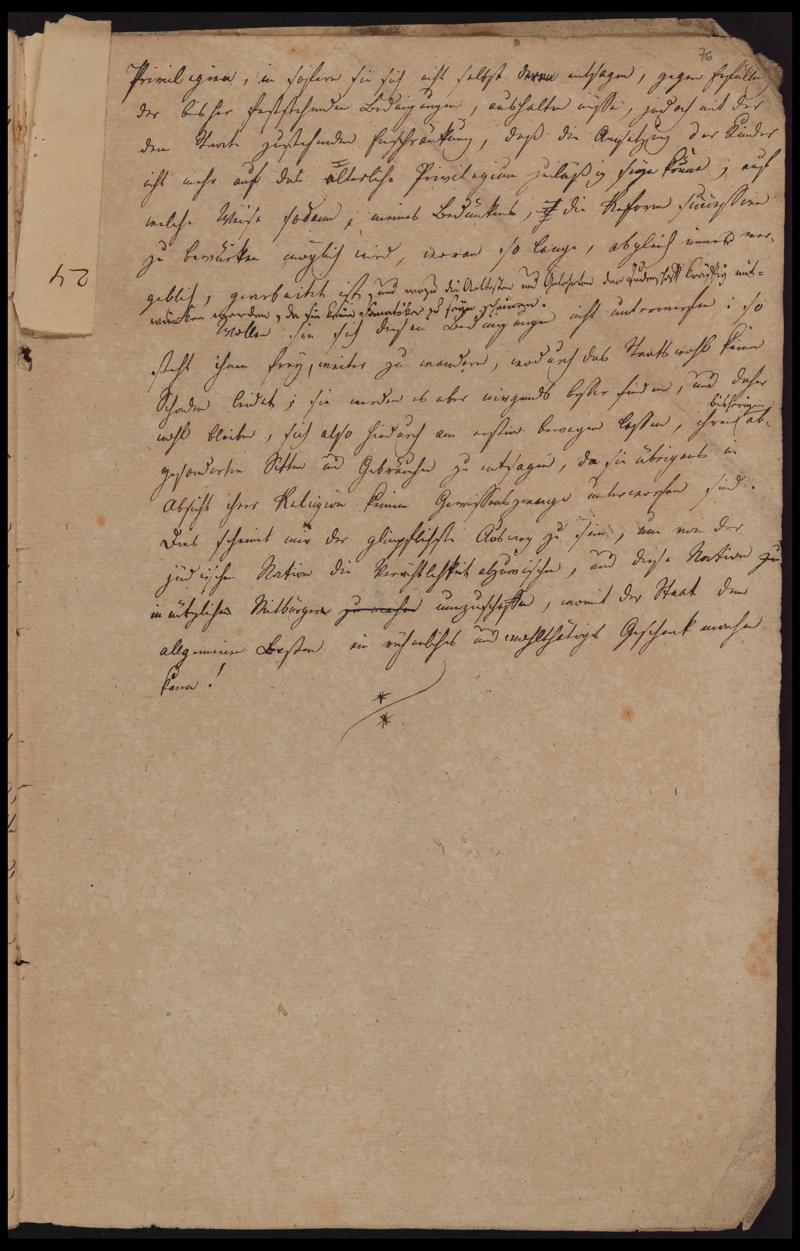 76
Privilegien, in sofern sie sich nicht selbst deren entsagen, gegen Erfüllung
der bisher feststehenden Bedingungen, aushalten müsse, jedoch mit der
dem Staate zustehenden Einschränkung, daß die Ansetzung der Kinder
nicht mehr auf das älterliche Privilegium zuläßig seyn könne; auf
welche Weise sodann, meines Bedünkens, die Reform successive
zu bewürken möglich wird, woran so lange, obgleich immer ver-
geblich, gearbeitet ist, und wozu die Aeltesten und Gelehrten der Judenschaft kräftig mit-
würken werden, da sie keine Fanatiker zu seyn scheinen.
Wollen sie sich diesen Bedingungen nicht unterwerfen: so
steht ihnen frey, weiter zu wandern, wodurch das Staatswohl keinen
Schaden leidet; sie werden es aber nirgends besser finden, und daher
wohl bleiben, sich also hiedurch am ersten bewegen lassen, ihren bisherigen ab-
gesonderten Sitten und Gebräuchen zu entsagen, da sie übrigens in
Absicht ihrer Religion keinem Gewissenszwange unterworfen sind.
Dies scheint mir der glimpflichste Ausweg zu sein, um von der
jüdischen Nation die Verächtlichkeit abzuwischen, und diese Nation zu
in nützliche Mitbürger zu machen umzuschaffen, womit der Staat dem
allgemeinen Besten ein rühmliches und wohlthätiges Geschenk machen
kann!
52